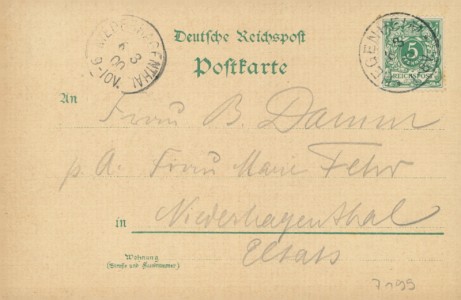 Deutsche Reichspost
Postkarte
5
REICHSPOST
An Frau B. Damm
p. A. Frau Marie Fehr
in Niederhagenthal
Elsass
Wohnung
(Straße und Hausnummer)
7195